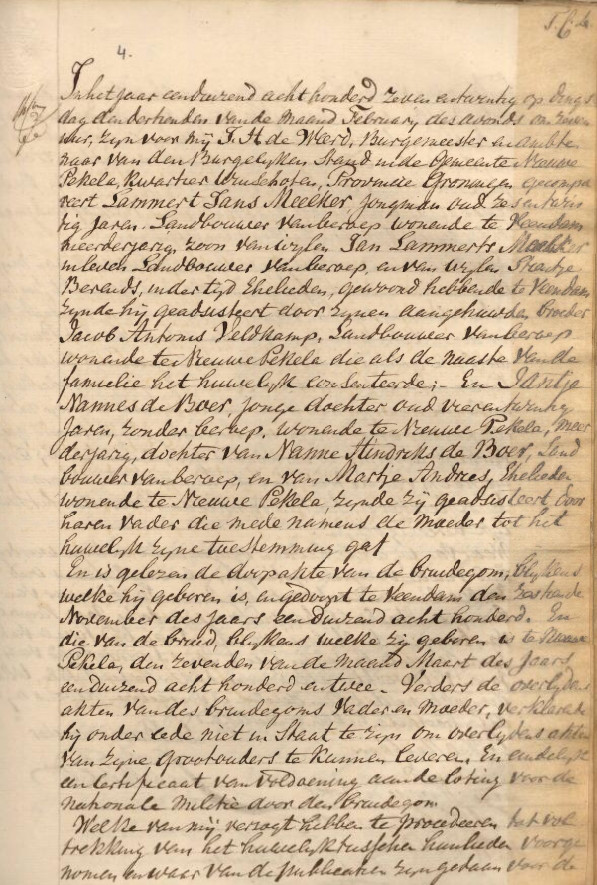 4.
In het jaar eenduizend acht honderd zeven en twintig op dings
dag den dertienden van de maand February des avonds om zeven
uur, zijn voor mij F. H. de Weerd, Burgemeester en ambte
naar van den Burgelyken Stand in de Gemeente Nieuwe
Pekela, kwartier Winschoten, Provincie Groningen gecompa
reert Lammert Jans Meelker jongman oud zes en twin
tig jaren. Landbouwer van beroep wonende te Veendam
meerderjarig zoon van wylen Jan Lammerts Meelker
in leven Landbouwer van beroep, en van wylen
Berends, in der tyd Ehelieden, gewoond hebbende te Veendam
zynde hij geadsisteert door zynen aangehuwden broeder
Jacob Antonis Veldkamp, Landbouwer van beroep
wonende te Nieuwe Pekela die als de naaste van de
familie het huwelyk consenteerde; - En Jantje
Nannes de Boer, jonge dochter oud vier en twintig
Jaren, zonder beroep, wonende te Nieuwe Pekela, meer
derjarig, dochter van Nanne Hindriks de Boer, Land
bouwer van beroep, en van Martje Andries, Ehelieden
wonende te Nieuwe Pekela, zynde zij geadsisteert door
haren vader die mede namens de moeder tot het
huwelyk zyne toestemming gaf
En is gelezen de doopakte van de bruidegom, blykens
welke hij geboren is, en gedoopt te Veendam den zestienden
November des jaars eenduizend acht honderd. En
die van de bruid, blykens welke zij geboren is te Nieuwe
Pekela, den zevenden van de maand Maart des jaars
eenduizend acht honderd en twee - Verders de overlydens
akten van des bruidegoms Vader en Moeder, verklarende
hij onder eede niet in Staat te zijn om overlydens akten
van zyne grootouders te kunnen leveren. En eindelyk
een Certificaat van voldoening aan de loting voor de
nationale Militie door den bruidegom
Welke van mij verzogt hebben te procedeeren tot vol
trekking van het huwelyk tusschen hunlieden voorge
nomen en waar van de publicatien zyn gedaan voor de